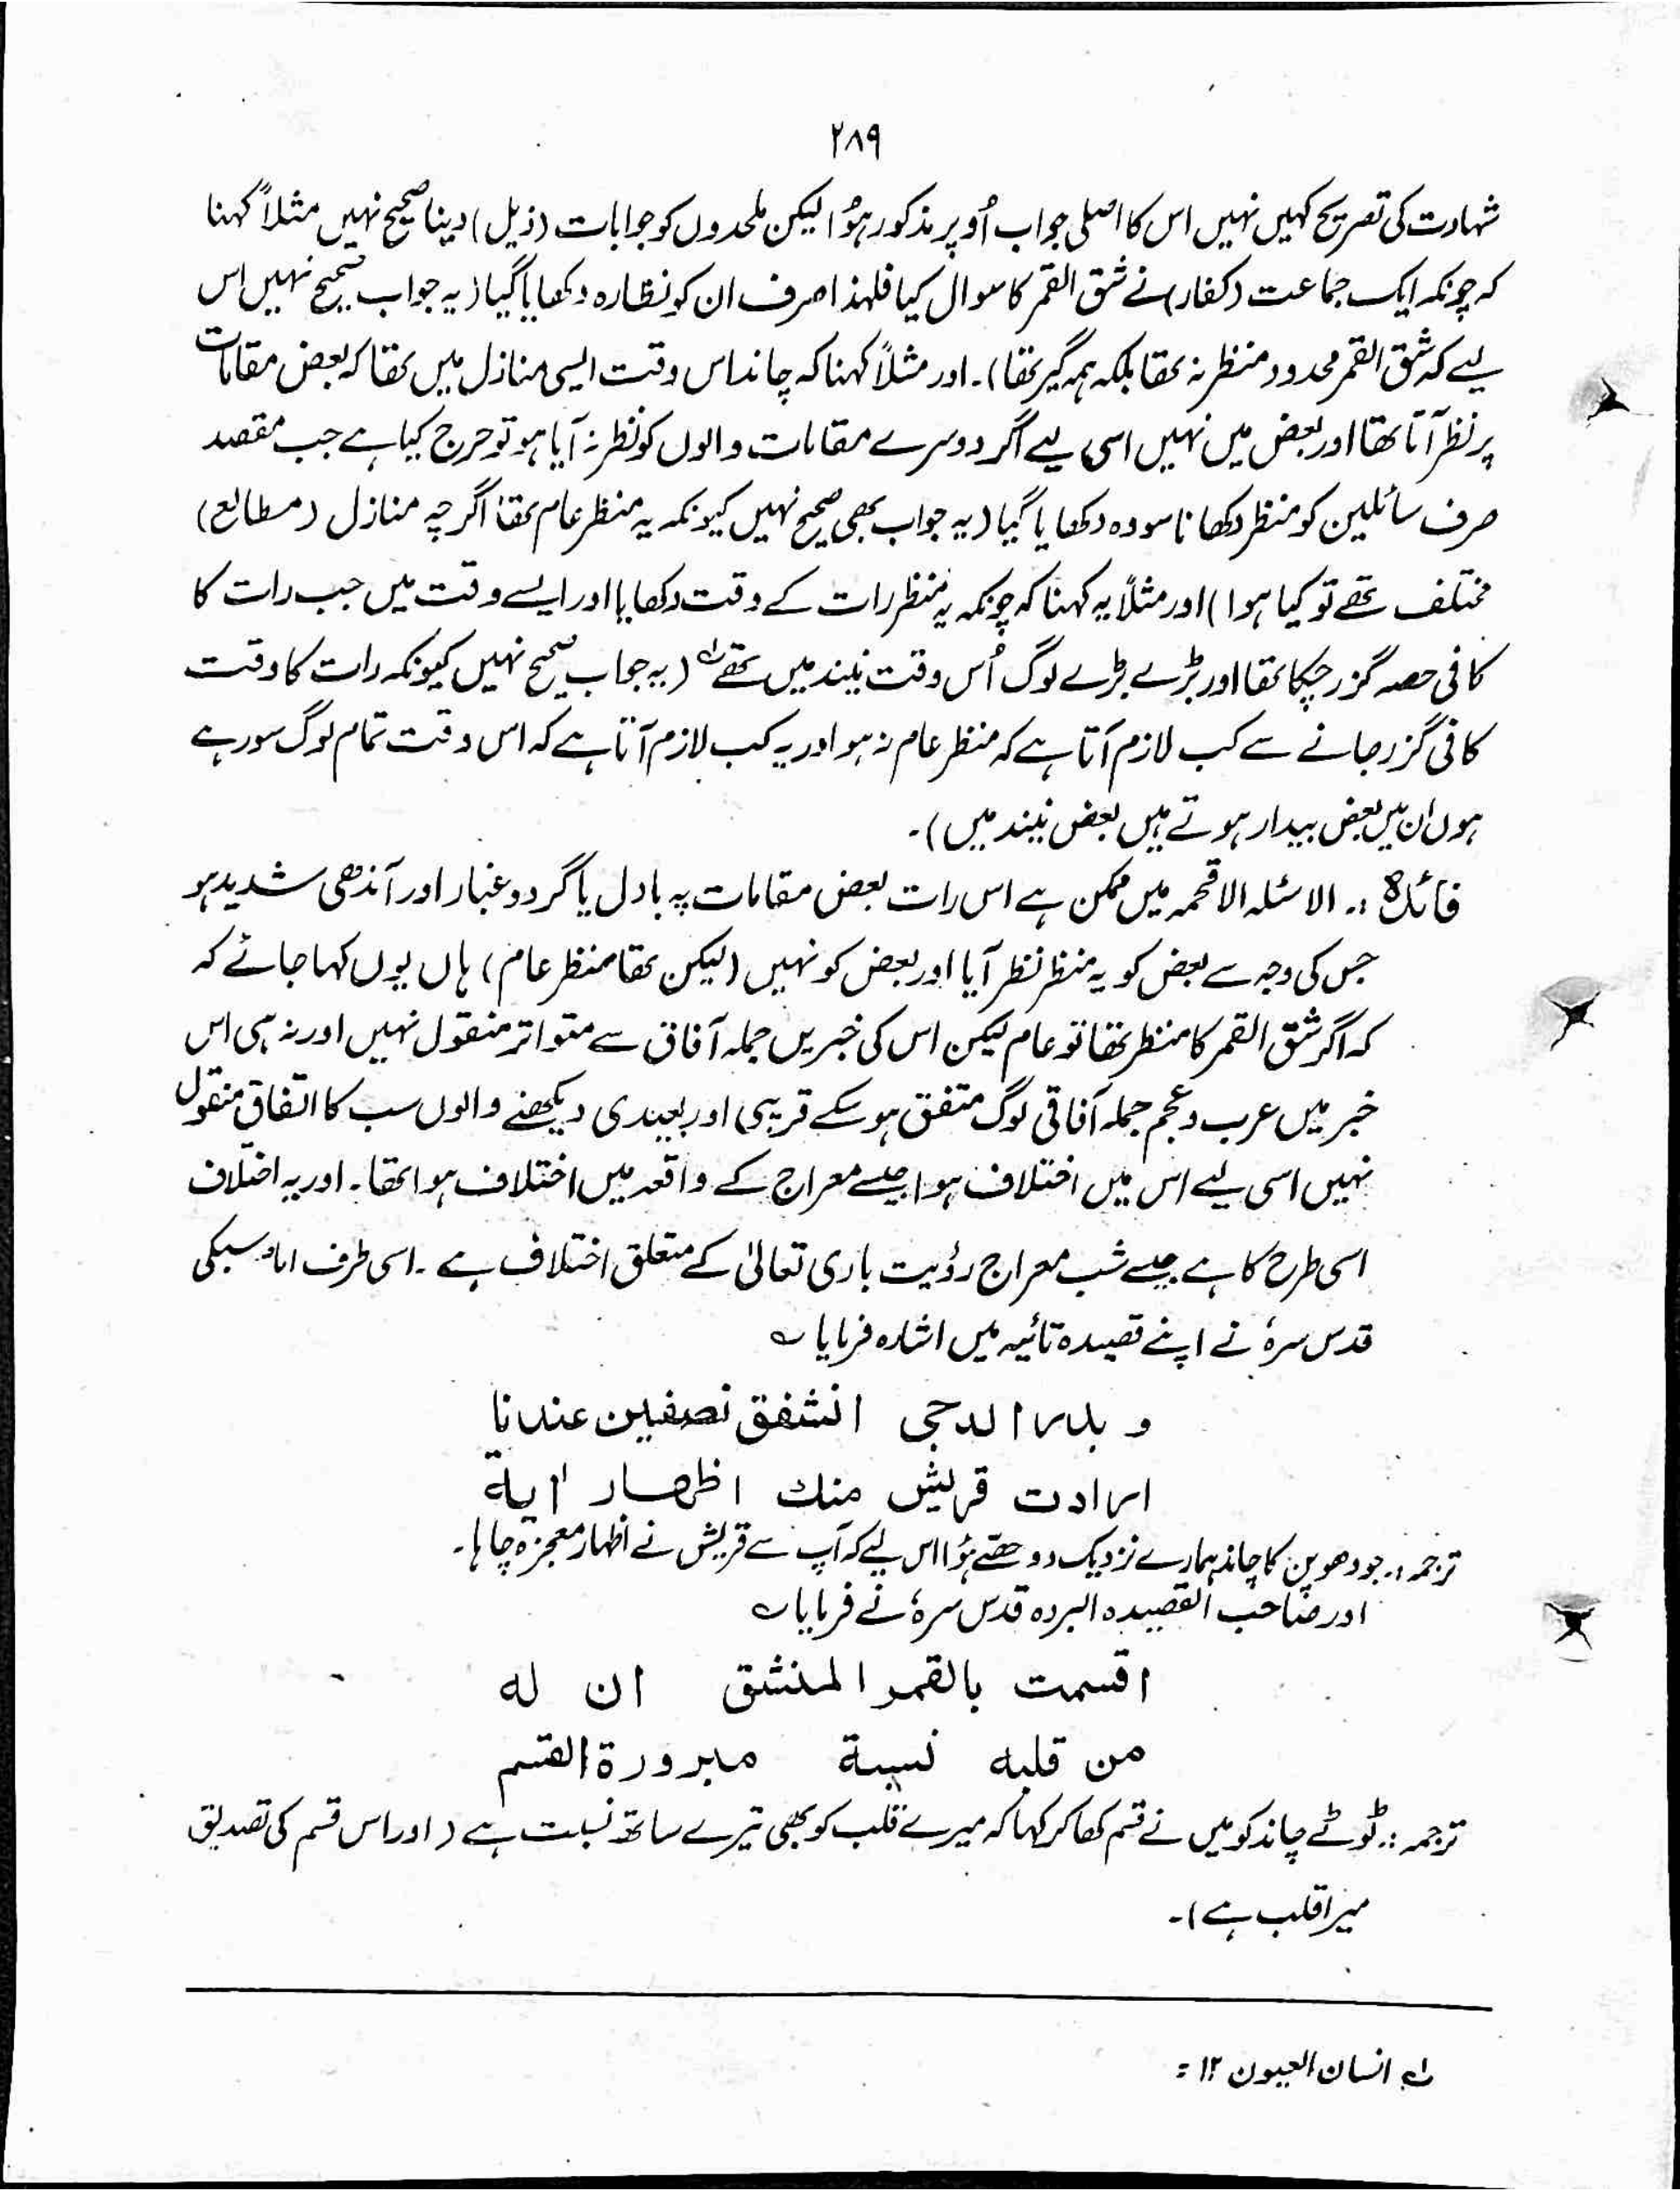 ۲۸۹
شہادت کی تصریح کہیں نہیں اس کا اصلی جواب اُوپر مذکور ہُوا لیکن ملحدوں کو جوابات (ذیل) دینا صحیح نہیں مثلاً کہنا
کہ چونکہ ایک جماعت (کفار) نے شق القمر کا سوال کیا فلہٰذا صرف ان کو نظارہ دکھایا گیا (یہ جواب صحیح نہیں اس
لیے کہ شق القمر محدود منظر نہ تھا بلکہ ہمہ گیر تھا)۔ اور مثلاً کہنا کہ چاند اس وقت ایسی منازل میں تھا کہ بعض مقامات
پر نظر آتا تھا اور بعض میں نہیں اسی لیے اگر دوسرے مقامات والوں کو نظر نہ آیا ہو تو حرج کیا ہے جب مقصد
صرف سائلین کو منظر دکھانا سو وہ دکھایا گیا (یہ جواب بھی صحیح نہیں کیونکہ یہ منظر عام تھا اگرچہ منازل (مطالع)
مختلف تھے تو کیا ہوا) اور مثلاً یہ کہنا کہ چونکہ یہ منظر رات کے وقت دکھایا اور ایسے وقت میں جب رات کا
کافی حصہ گزر چکا تھا اور بڑے بڑے لوگ اُس وقت نیند میں تھے؂۱ (یہ جواب صحیح نہیں کیونکہ رات کا وقت
کافی گزر جانے سے کب لازم آتا ہے کہ منظر عام نہ ہو اور یہ کب لازم آتا ہے کہ اس وقت تمام لوگ سو رہے
ہوں ان میں بعض بیدار ہوتے ہیں بعض نیند میں)۔
فائدہ :۔ الاسئلہ الاقحمہ میں ممکن ہے اس رات بعض مقامات پہ بادل یا گرد و غبار اور آندھی شدید ہو
جس کی وجہ سے بعض کو یہ منظر نظر آیا اور بعض کو نہیں (لیکن تھا منظر عام) ہاں یوں کہا جائے کہ
کہ اگر شق القمر کا منظر تھا تو عام لیکن اس کی خبریں جملہ آفاق سے متواتر منقول نہیں اور نہ ہی اس
خبر میں عرب و عجم جملہ آفاقی لوگ متفق ہو سکے قریبی اور بعیدی دیکھنے والوں سب کا اتفاق منقول
نہیں اسی لیے اس میں اختلاف ہوا جیسے معراج کے واقعہ میں اختلاف ہوا تھا۔ اور یہ اختلاف
اسی طرح کا ہے جیسے شب معراج رؤیت باری تعالیٰ کے متعلق اختلاف ہے۔ اسی طرف امام سبکی
قدس سرہٗ نے اپنے قصیدہ تائیہ میں اشارہ فرمایا ؎
و بدر الدجی انشفق نصفین عندنا
ارادت قریش منك اظهار اٰیة
ترجمہ :۔ جودھویں کا چاند ہمارے نزدیک دو حصّے ہُوا اس لیے کہ آپ سے قریش نے اظہار معجزہ چاہا۔
اور صاحب القصیدہ البردہ قدس سرہٗ نے فرمایا ؎
اقسمت بالقمر المنشق ان له
من قلبه نسبة مبرورة القسم
ترجمہ :۔ ٹوٹے چاند کو میں نے قسم کھا کر کہا کہ میرے قلب کو بھی تیرے ساتھ نسبت ہے (اور اس قسم کی تصدیق
میرا قلب ہے)۔
؂۱ انسان العیون ۱۲ =